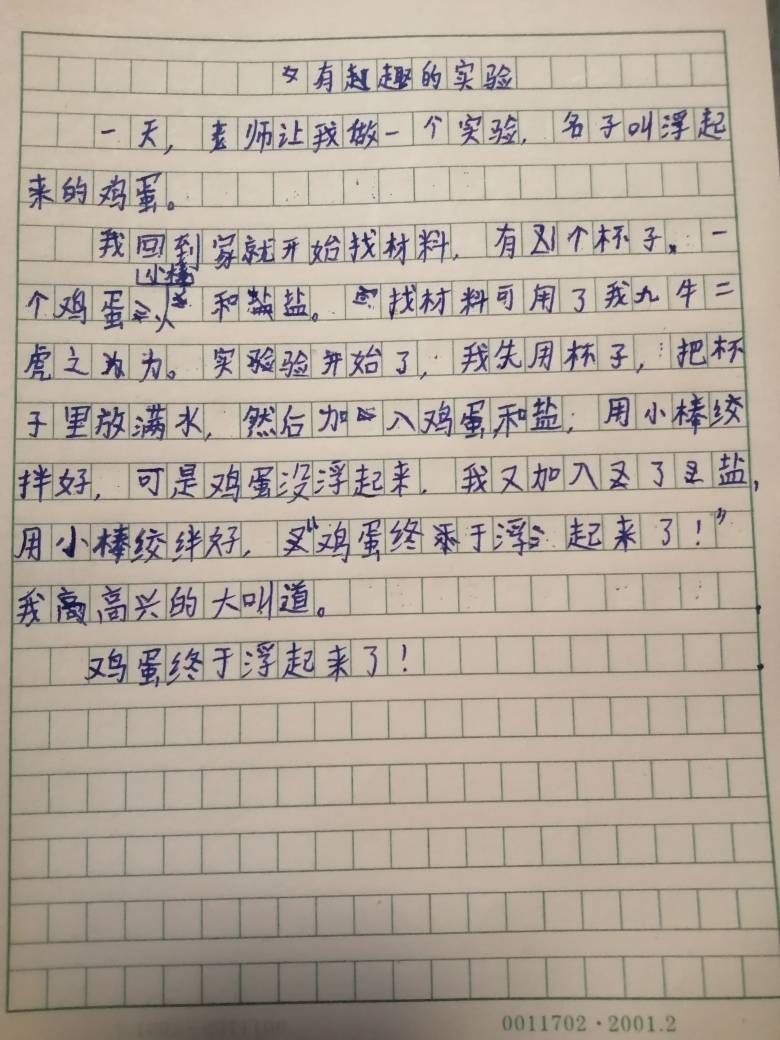 有趣的实验
一天，老师让我做一个实验，名子叫浮起
来的鸡蛋。
我回到家就开始找材料，有一个杯子、一
小棒
个鸡蛋、和盐。找材料可用了我九牛二
虎之力。实验开始了，我先用杯子，把杯
子里放满水，然后加入鸡蛋和盐，用小棒绞
拌好，可是鸡蛋没浮起来，我又加入了盐，
用小棒绞绊好，“鸡蛋终于浮起来了！”
我高兴的大叫道。
鸡蛋终于浮起来了！
0011702·2001.2